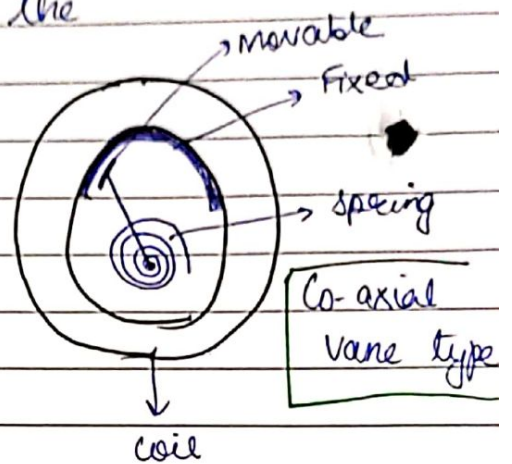 the
Movable
Fixed
spring
Co-axial
vane type
coil